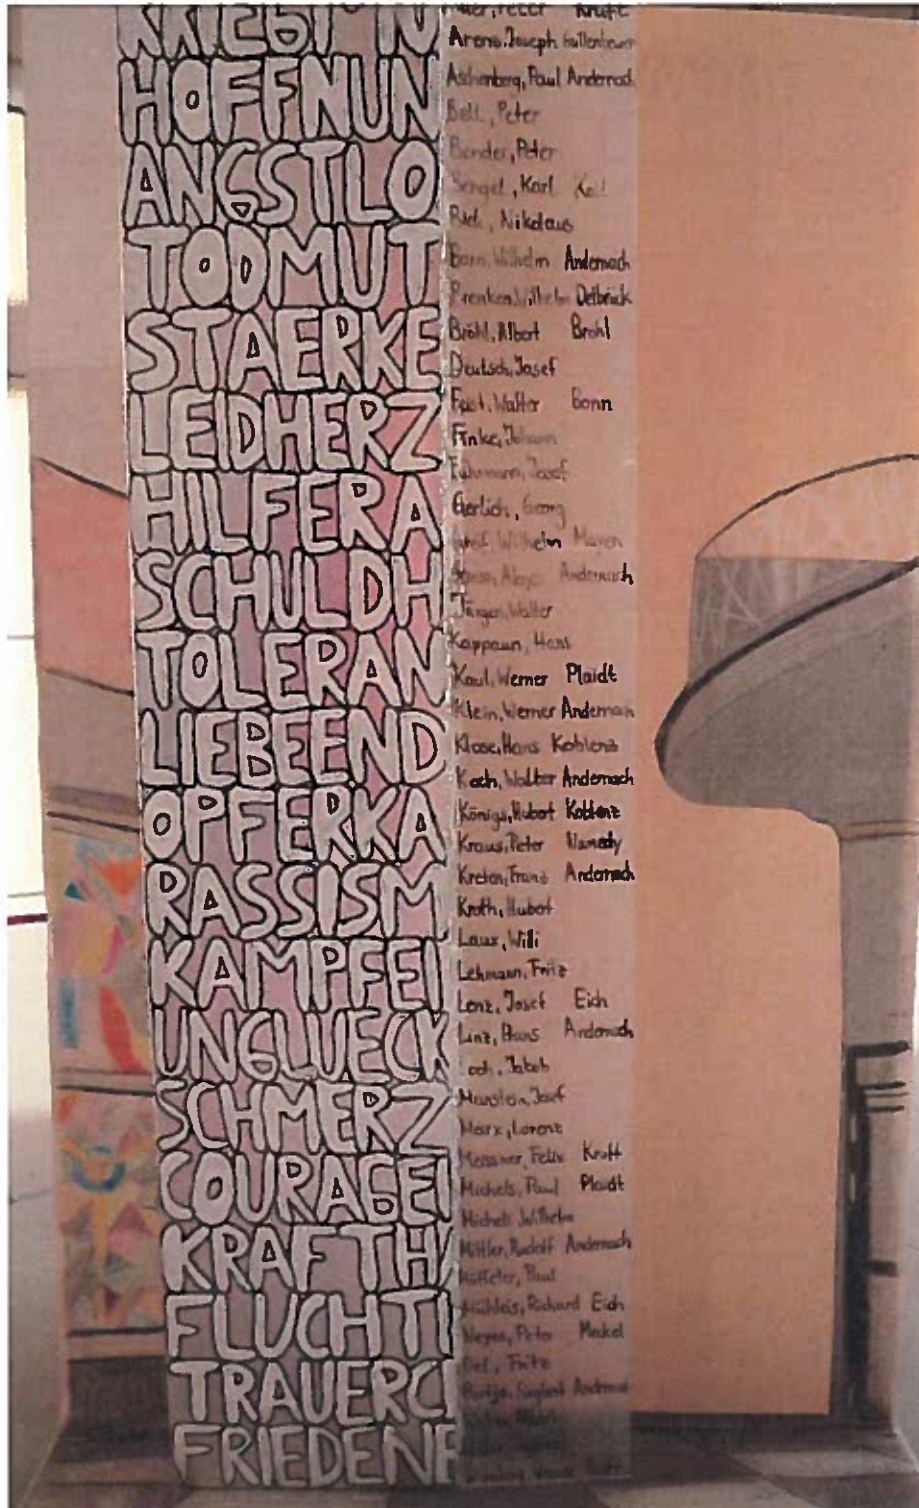 HOFFNUN
ANGSTLO
TODMUT
STAERKE
LEIDHERZ
HILFERA
SCHULDH
TOLERAN
LIEBEEND
OPFERKA
RASSISM
KAMPFEI
UNGLUECK
SCHMERZ
COURAGEI
KRAFTH
FLUCHTI
TRAUERC
FRIEDENE
Peter Kruft
Arens, Joseph
Aschenberg, Paul Andernach
Bell, Peter
Bender, Peter
Bengel, Karl
Nikolaus
Born, Wilhelm Andernach
Wilhelm Delbrück
Bröhl, Albert Brohl
Deutsch, Josef
Feist, Walter Bonn
Finke, Johann
Josef
Gerlich, Georg
Wilhelm Mayen
Andernach
Jürgen, Walter
Kappaun, Hans
Kaul, Werner Plaidt
Klein, Werner Andernach
Klose, Hans Koblenz
Koch, Walter Andernach
Königs, Hubert Koblenz
Kraus, Peter Namedy
Franz Andernach
Kroth, Hubert
Laux, Willi
Lehmann, Fritz
Lenz, Josef Eich
Linz, Hans Andernach
Jakob
Manstein, Josef
Marx, Lorenz
Meissner, Felix Kruft
Michels, Paul Plaidt
Michels Wilhelm
Mittler, Rudolf Andernach
Paul
Mühleis, Richard Eich
Peter Meckel
Fritz